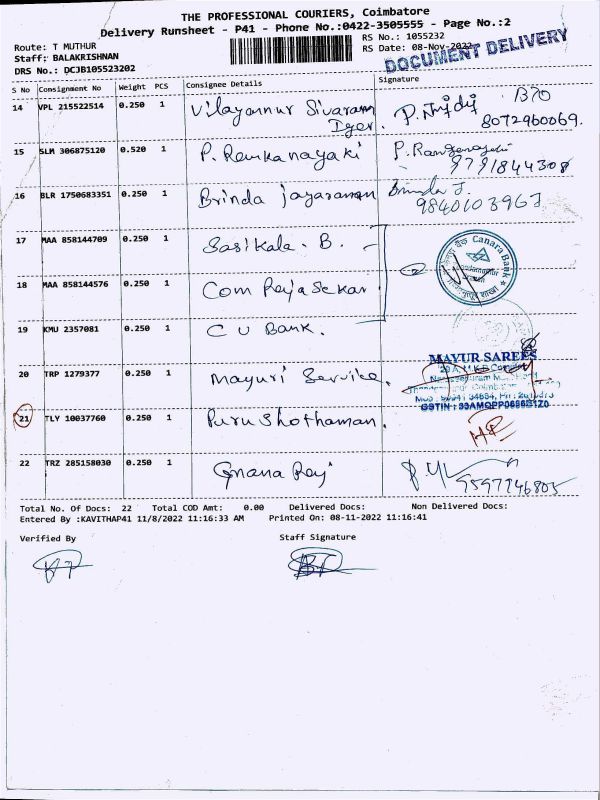 THE PROFESSIONAL COURIERS, Coimbatore
Delivery Runsheet - P41 - Phone No.:0422-3505555 - Page No.:2
Route: T MUTHUR
RS No.: 1055232
Staff: BALAKRISHNAN
RS Date: 08-Nov-2022
DOCUMENT DELIVERY
DRS No.: DCJB105523202
S No Consignment No Weight PCS Consignee Details Signature
14 VPL 215522514 0.250 1 Vilayannur Sivaram
Iyer.
8072960069.
15 SLM 306875120 0.520 1 P. Renkanayaki
9791844308
16 BLR 1750683351 0.250 1 Brinda Jayaraman Brinda J.
9840103967
17 MAA 858144709 0.250 1 Sasikala. B.
Canara Bank
18 MAA 858144576 0.250 1 Com Rajasekar
19 KMU 2357081 0.250 1 C U Bank.
MAYUR SAREES
20 TRP 1279377 0.250 1 Mayuri Service.
21 TLY 10037760 0.250 1 Purushothaman.
22 TRZ 285158030 0.250 1 Gnana Raj
9597746805
Total No. Of Docs: 22 Total COD Amt: 0.00 Delivered Docs: Non Delivered Docs:
Entered By :KAVITHAP41 11/8/2022 11:16:33 AM Printed On: 08-11-2022 11:16:41
Verified By Staff Signature